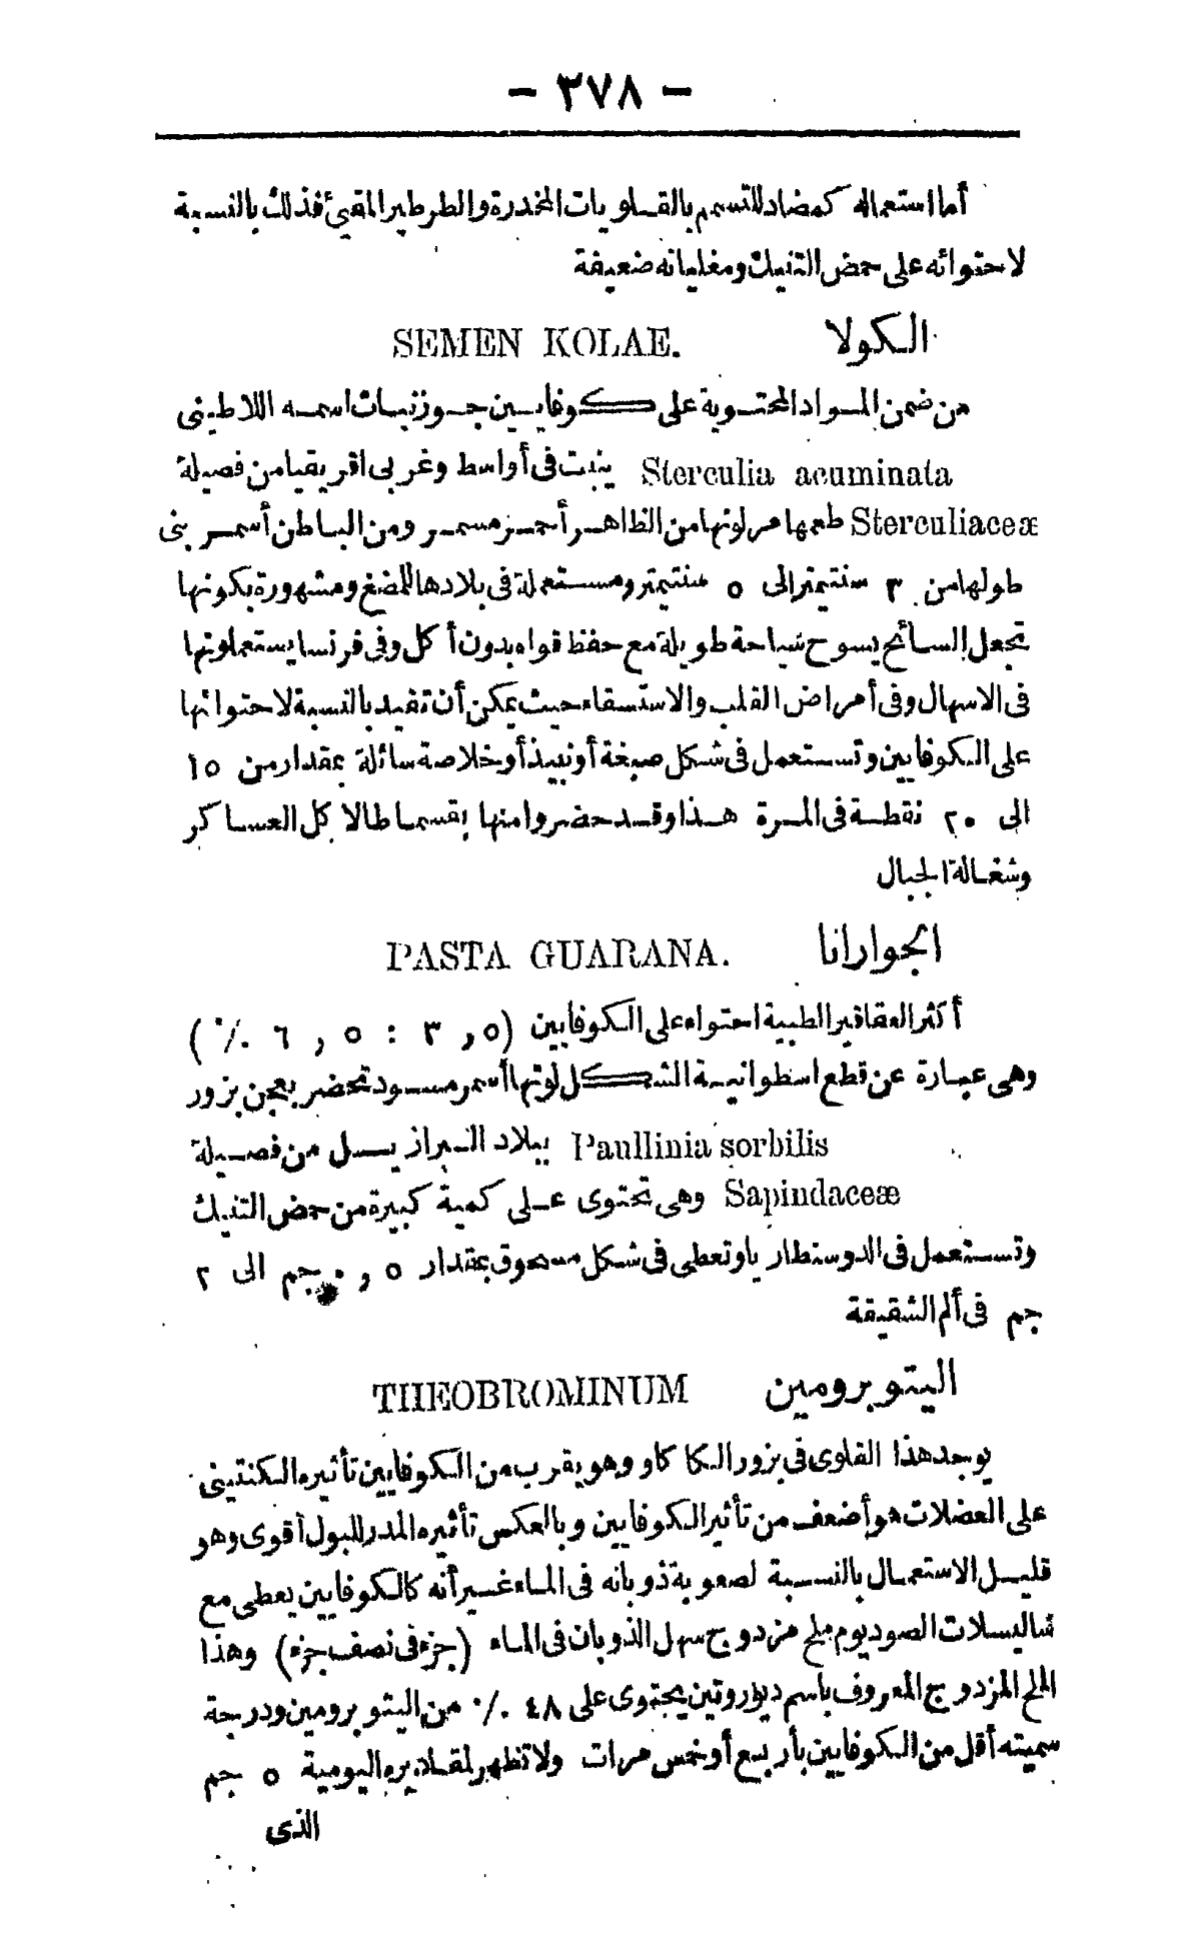 - ٣٧٨ -
أما استعماله كمضاد للتسمم بالقلويات المخدرة والطرطير المقيئ فذلك بالنسبة
لاحتوائه على حمض التنيك ومغلياته ضعيفة
الكولا SEMEN KOLAE.
من ضمن المواد المحتوية على كوفايين جوز نبات اسمه اللاطينى
Sterculia acuminata ينبت فى أواسط وغربى افريقيا من فصيلة
Sterculiaceæ طعمها مر لونها من الظاهر أحمر مسمر ومن الباطن أسمر بنى
طولها من ٣ سنتيمتر الى ٥ سنتيمتر ومستعملة فى بلادها للمضغ ومشهورة بكونها
تجعل السائح يسوح سياحة طويلة مع حفظ قواه بدون أكل وفى فرنسا يستعملونها
فى الاسهال وفى أمراض القلب والاستسقاء حيث يمكن أن تفيد بالنسبة لاحتوائها
على الكوفايين وتستعمل فى شكل صبغة أو نبيذ أو خلاصة سائلة بمقدار من ١٥
الى ٢٠ نقطة فى المرة هذا وقد حضروا منها بقسماطا لاكل العساكر
وشغالة الجبال
الجوارانا PASTA GUARANA.
أكثر العقاقير الطبية احتواء على الكوفايين (٣,٥ : ٦,٥ ٪)
وهى عبارة عن قطع اسطوانية الشكل لونها أسمر مسود تحضر بعجن بزور
Paullinia sorbilis ببلاد البرازيل من فصيلة
Sapindaceæ وهى تحتوى على كمية كبيرة من حمض التنيك
وتستعمل فى الدوسنطاريا وتعطى فى شكل مسحوق بمقدار ٠,٥ جم الى ٢
جم فى ألم الشقيقة
التيوبرومين THEOBROMINUM
يوجد هذا القلوى فى بزور الكاكاو وهو يقرب من الكوفايين تأثيره الكنتينى
على العضلات هو أضعف من تأثير الكوفايين وبالعكس تأثيره المدر للبول أقوى وهو
قليل الاستعمال بالنسبة لصعوبة ذوبانه فى الماء غير أنه كالكوفايين يعطى مع
ساليسلات الصوديوم ملح مزدوج سهل الذوبان فى الماء (جزء فى نصف جزء) وهذا
الملح المزدوج المعروف باسم ديوروتين يحتوى على ٤٨ ٪ من التيوبرومين ودرجة
سميته أقل من الكوفايين بأربع أو خمس مرات ولا تظهر لمقاديره اليومية ٥ جم
الذى